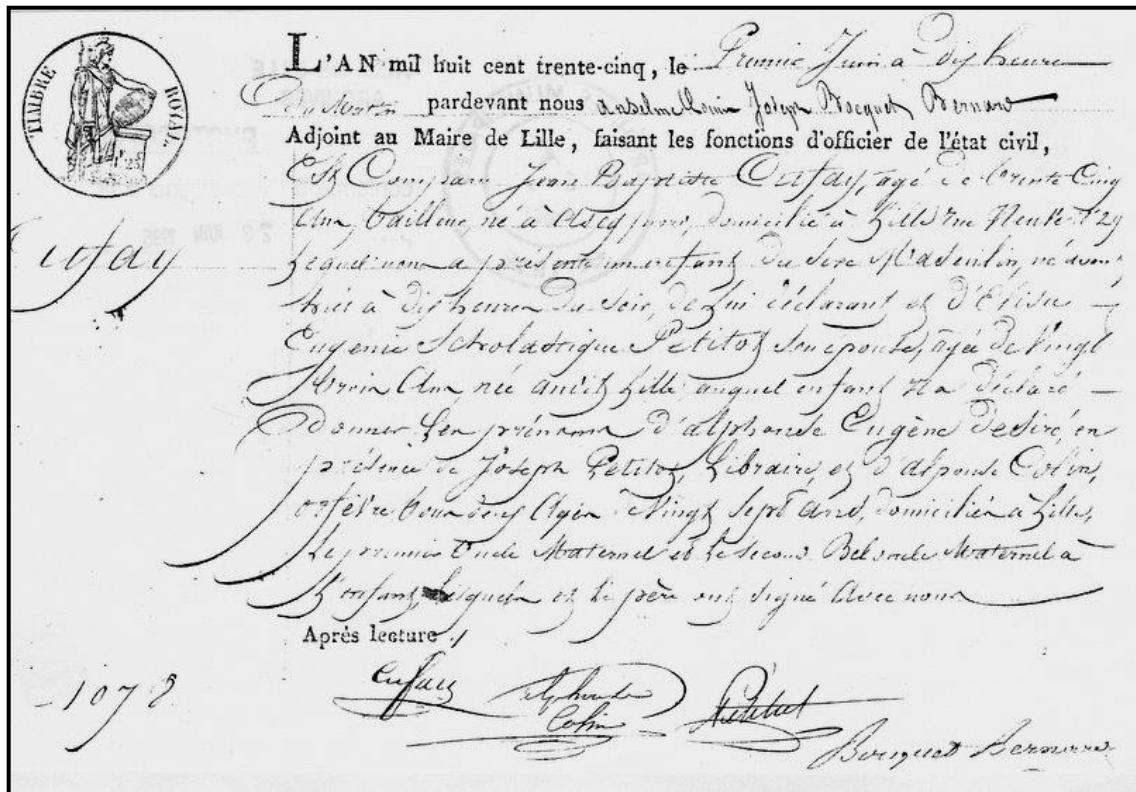 TIMBRE ROYAL.
1f 25
L'AN mil huit cent trente-cinq, le Premier Juin à dix heures
Du Matin pardevant nous Anselme Louis Joseph Bocquet Bernard
Adjoint au Maire de Lille, faisant les fonctions d'officier de l'état civil,
Est Comparu Jean Baptiste Cufay, agé de trente Cinq
Ans, tailleur, né à domicilié à Lille rue Neuve n° 29
Lequel nous a présenté un enfant du sexe Masculin, né avant
hier à dix heures du soir, de lui déclarant et d'Elisa
Cufay
Eugenie Scholastique Petitot son épouse, agée de Vingt
trois Ans née audit Lille auquel enfant il a déclaré
Donner les prénoms d'alphonse Eugène Desiré, en
présence de Joseph Petitot, Libraire, et d'alponse Colin,
orfèvre tous deux Agés de Vingt Sept Ans, domiciliés à Lille,
Le premier Oncle Maternel et le second Bel oncle Maternel à
L'enfant, lesquels et le père ont signé Avec nous
Après lecture
1078
Cufay Alphonse Colin Petitot
Bocquet Bernard